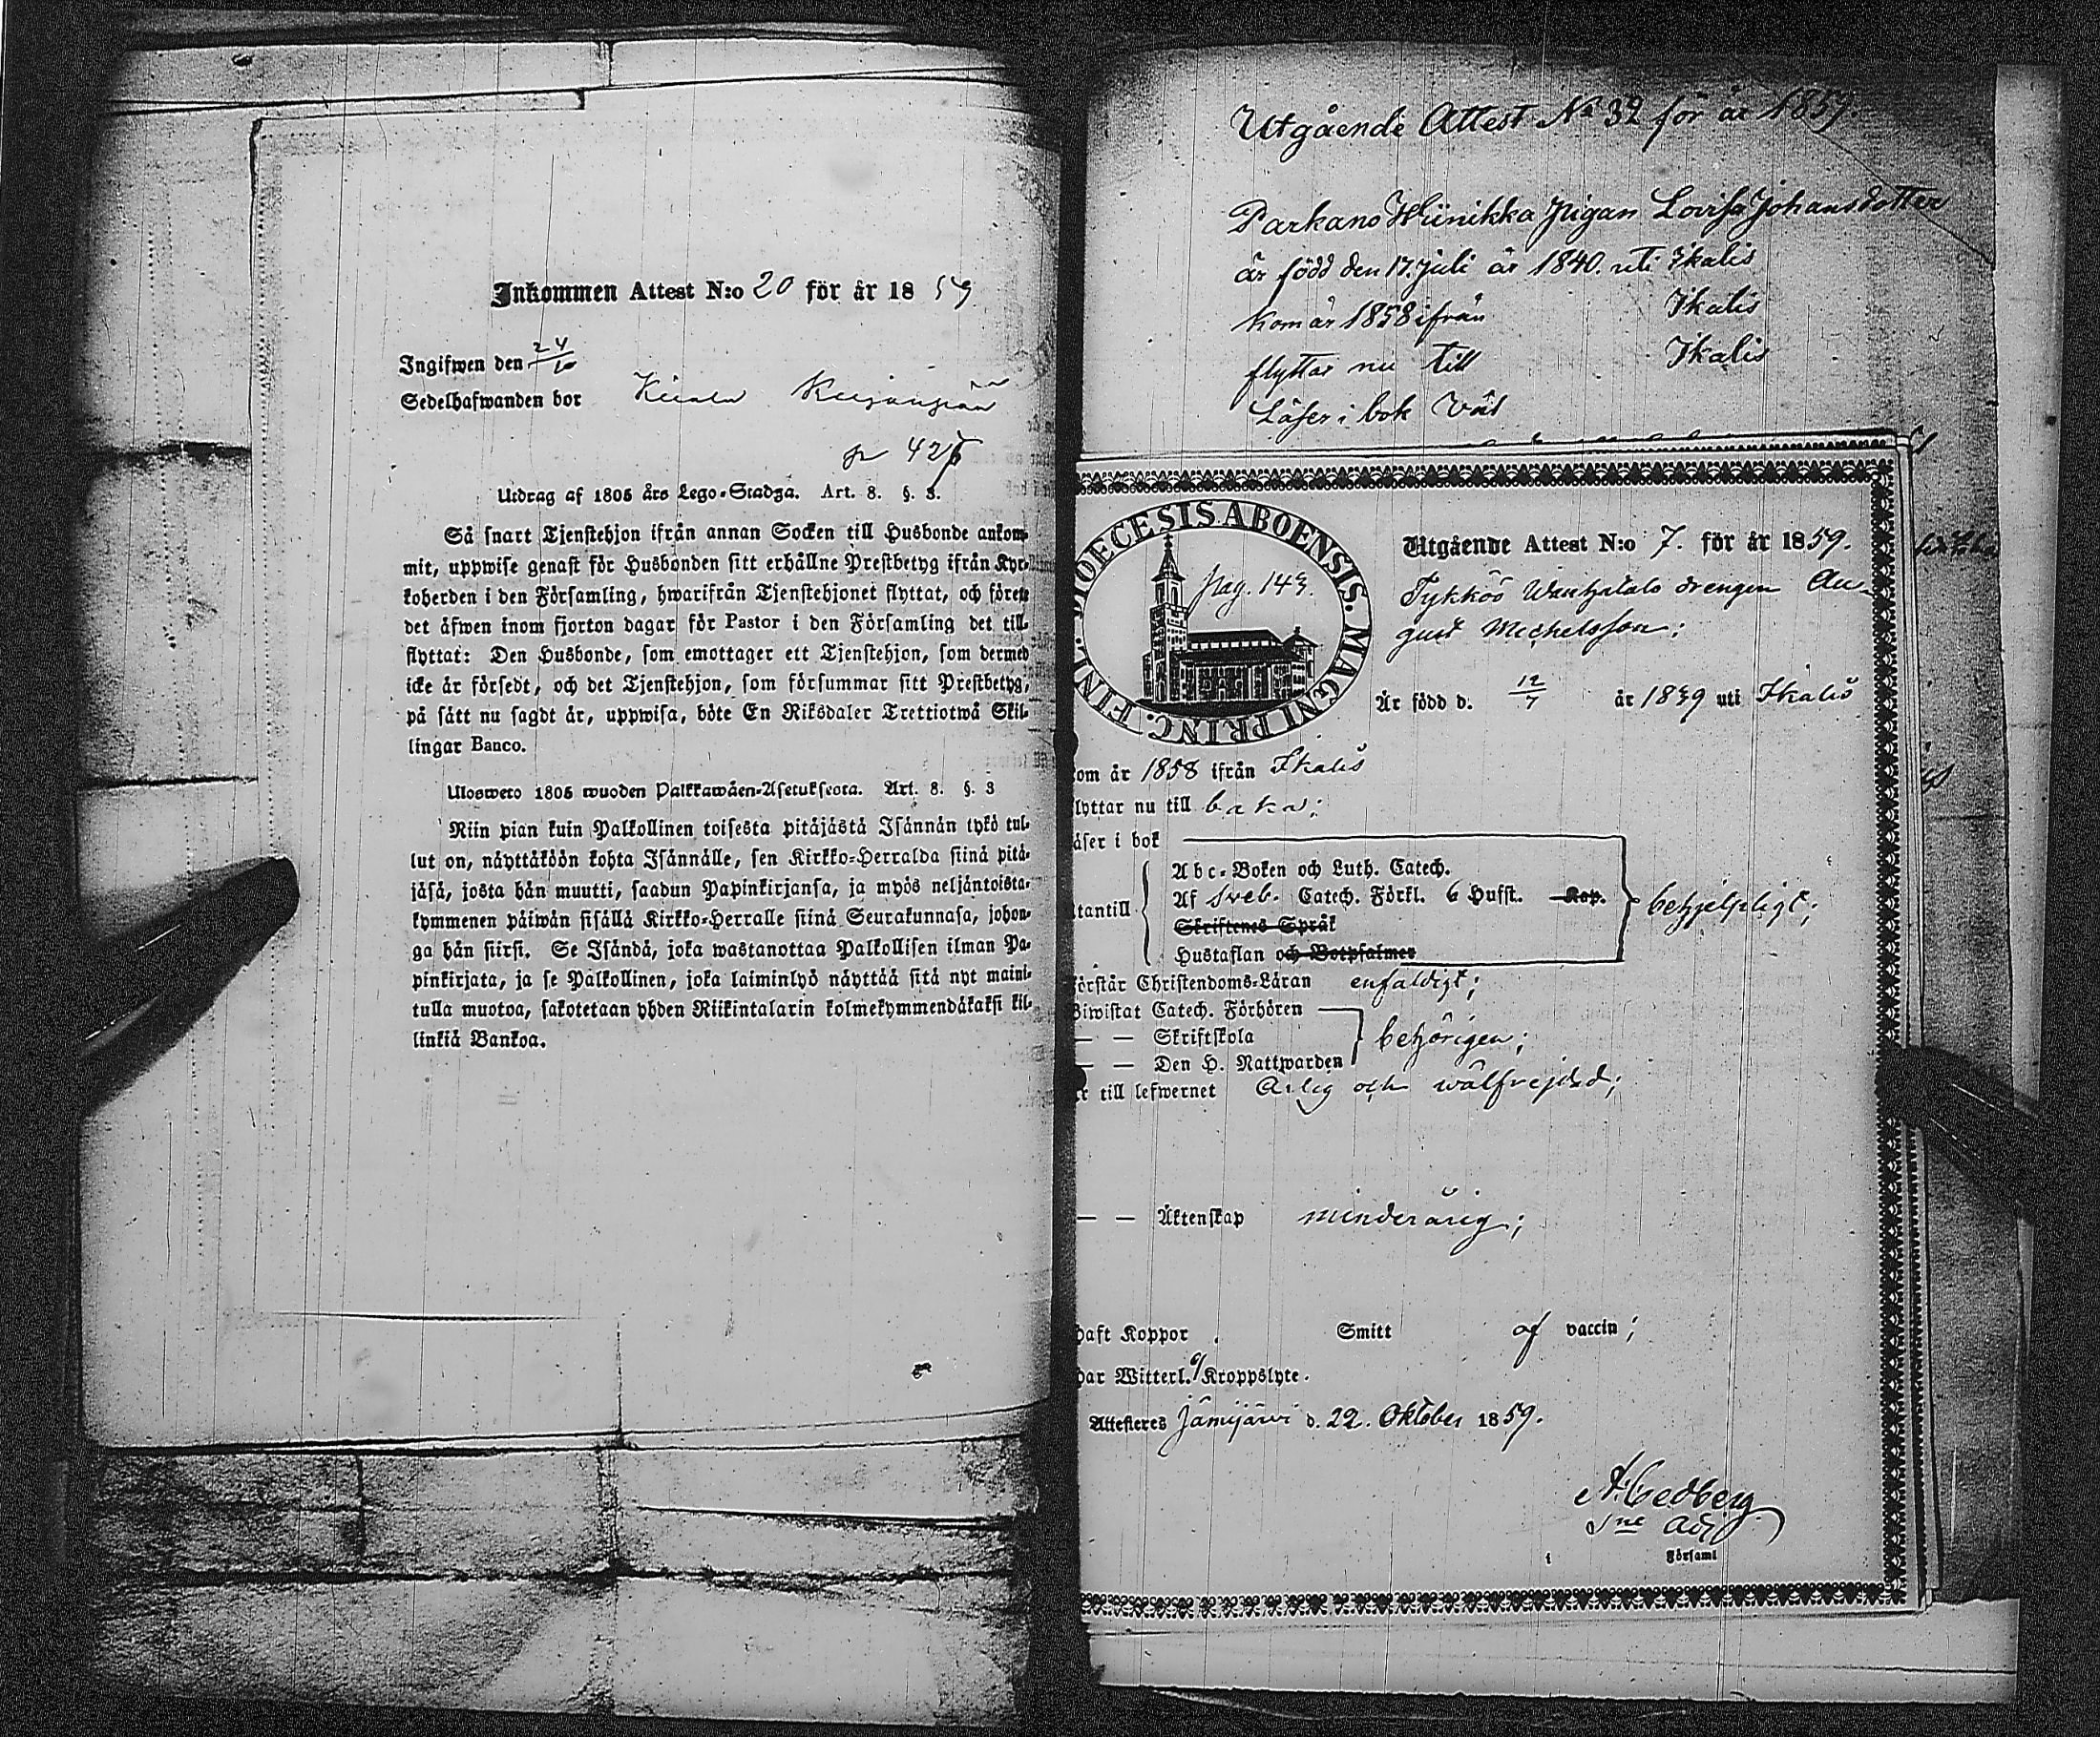 Inkommen Attest N:o 20 för år 1859
Ingifwen den 24/10
Sedelhafwanden bor
p 427
Utdrag af 1805 års Lego-Stadga. Art. 8. §. 3.
Så snart Tjenstehjon ifrån annan Socken till Husbonde ankom-
mit, uppwise genast för Husbonden sitt erhållne Prestbetyg ifrån Kyr-
koherden i den Församling, hwarifrån Tjenstehjonet flyttat, och förete
det äfwen inom fjorton dagar för Pastor i den Församling det till-
flyttat: Den Husbonde, som emottager ett Tjenstehjon, som dermed
icke är försedt, och det Tjenstehjon, som försummar sitt Prestbetyg,
på sätt nu sagdt är, uppwisa, böte En Riksdaler Trettiotwå Skil-
lingar Banco.
Ulosweto 1805 wuoden Palkkawäen-Asetuksesta. Art. 8. §. 3
Niin pian kuin Palkollinen toisesta pitäjästä Isännän tykö tul-
lut on, näyttäköön kohta Isännälle, sen Kirkko-Herralda siinä pitä-
jäsä, josta hän muutti, saadun Papinkirjansa, ja myös neljäntoista-
kymmenen päiwän sisällä Kirkko-Herralle siinä Seurakunnasa, johon-
ga hän siirsi. Se Isändä, joka wastanottaa Palkollisen ilman Pa-
pinkirjata, ja se Palkollinen, joka laiminlyö näyttää sitä nyt maini-
tulla muotoa, sakotetaan yhden Riikintalarin kolmekymmendäkaksi kil-
linkiä Bankoa.
Utgående Attest No 32 för år 1859.
Parkano Hiinikka Pigan Lovisa Johansdotter
är född den 17. juli år 1840. uti Ikalis
Kom år 1858 ifrån Ikalis
flyttar nu till Ikalis
Läser i bok Väl
DIOECESIS ABOENSIS. MAGNI PRINC. FINL.
Pag. 143.
Utgående Attest N:o 7. för år 1859.
Tykköö drengen Au-
gust Michelsson;
Är född d. 12/7 år 1839 uti Ikalis
om år 1858 ifrån Ikalis
lyttar nu till baka;
äser i bok
Abc-Boken och Luth. Catech.
tantill Af Sveb. Catech. Förkl. 6 Hufst. Kap. behjelpligt;
Skriftenes Språk
Hustaflan och Botpsalmer
örstår Christendoms-Läran enfaldigt;
Biwistat Catech. Förhören
— — Skriftskola behörigen;
— — Den H. Nattwarden
r till lefwernet Ärlig och wälfrejdad;
— — Äktenskap minderårig;
haft Koppor Smitt af vaccin;
har Witterl. Kroppslyte.
Attesteras Jämijärvi d. 22. Oktober 1859.
A. Cedberg
Adj
i Församl